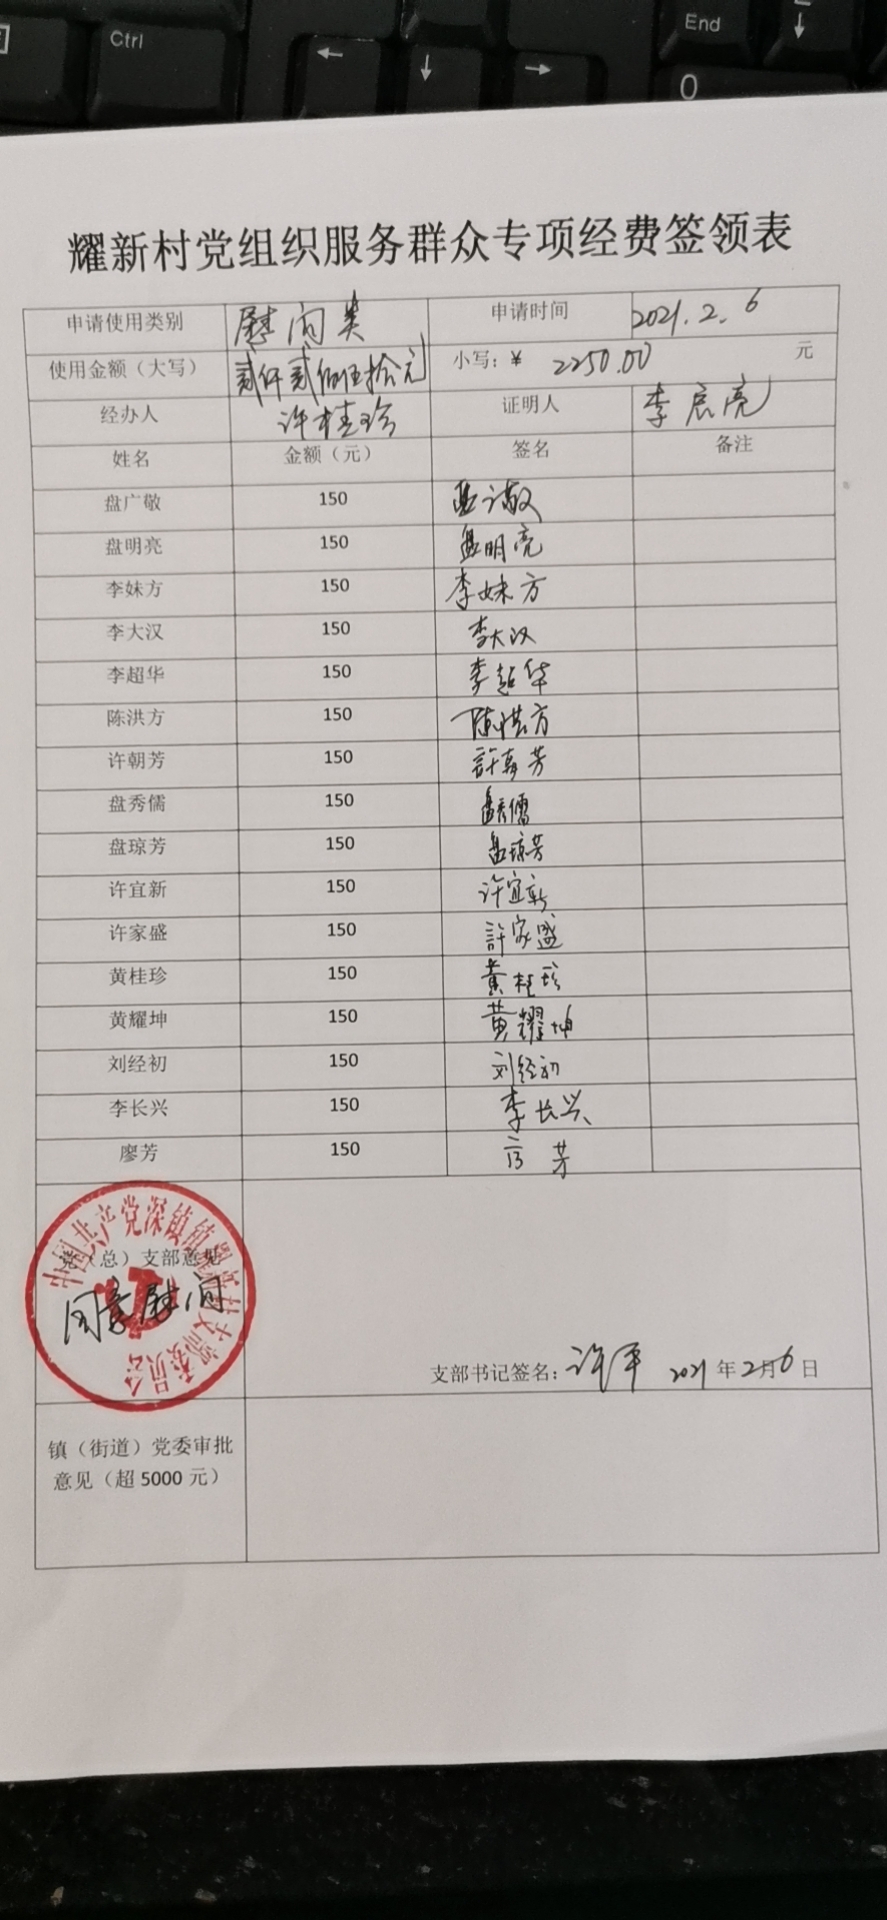 Ctrl
End
←
↓
→
↓
0
耀新村党组织服务群众专项经费签领表
申请使用类别 慰问类 申请时间 2021.2.6
使用金额（大写） 贰仟贰佰伍拾元 小写：¥ 2250.00 元
经办人 许桂珍 证明人 李启亮
姓名 金额（元） 签名 备注
盘广敬 150 盘广敬
盘明亮 150 盘明亮
李妹方 150 李妹方
李大汉 150 李大汉
李超华 150 李超华
陈洪方 150 陈洪方
许朝芳 150 許朝芳
盘秀儒 150 盘秀儒
盘琼芳 150 盘琼芳
许宜新 150 许宜新
许家盛 150 許家盛
黄桂珍 150 黄桂珍
黄耀坤 150 黄耀坤
刘经初 150 刘经初
李长兴 150 李长兴
廖芳 150 芳
党（总）支部意见
同意慰问
中国共产党深镇镇耀新村支部委员会
支部书记签名：许平 2021年2月6日
镇（街道）党委审批
意见（超 5000 元）